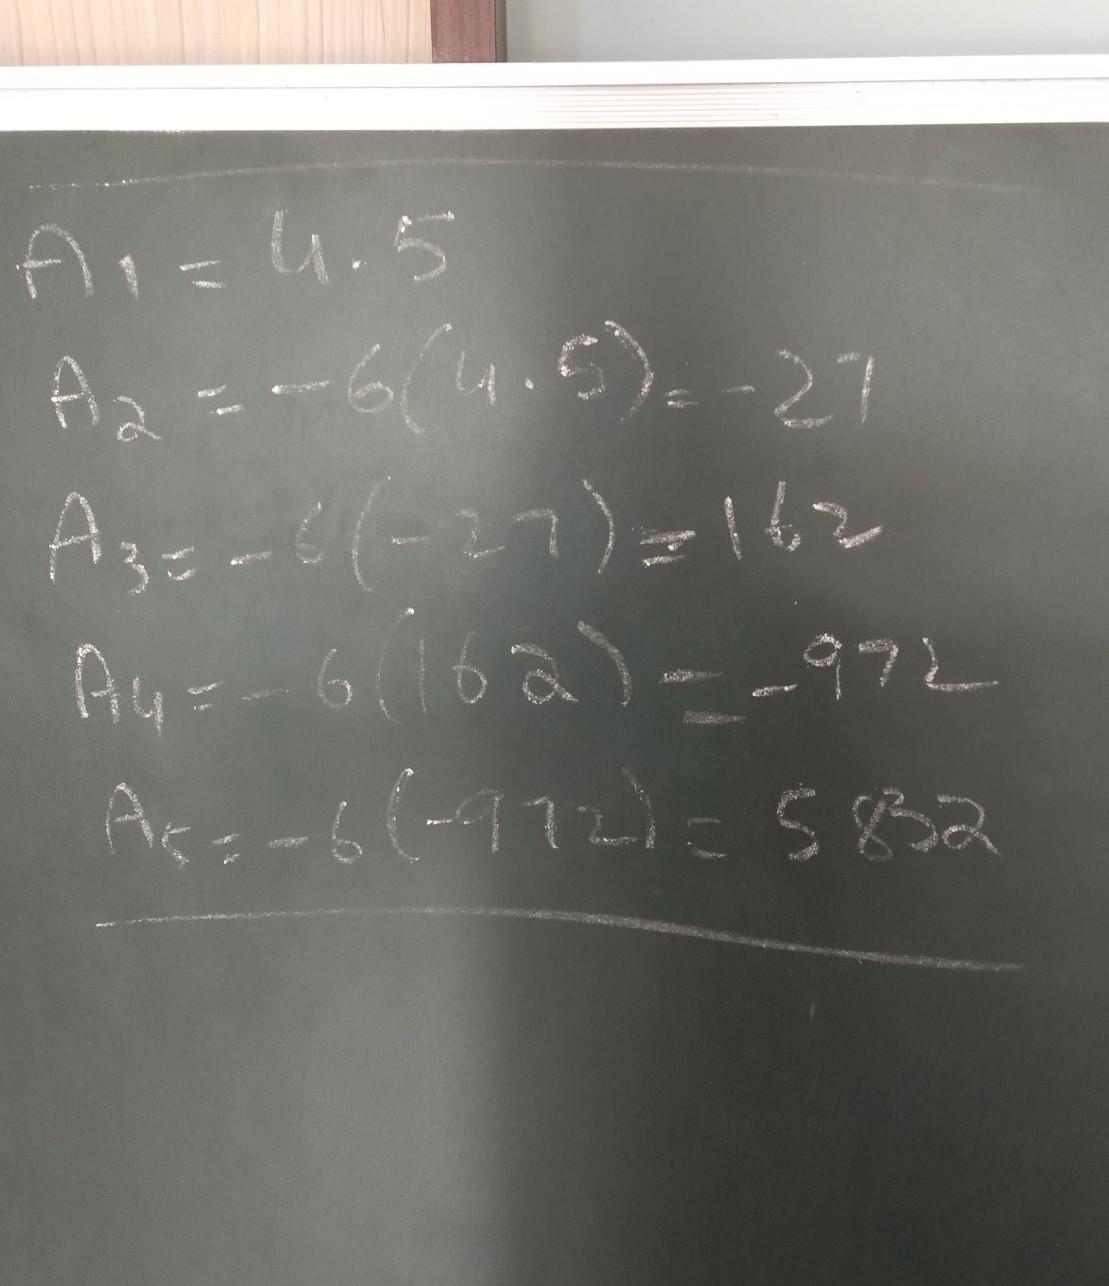 A1 = 4.5
A2 = -6(4.5) = -27
A3 = -6(-27) = 162
A4 = -6(162) = -972
A5 = -6(-972) = 5832